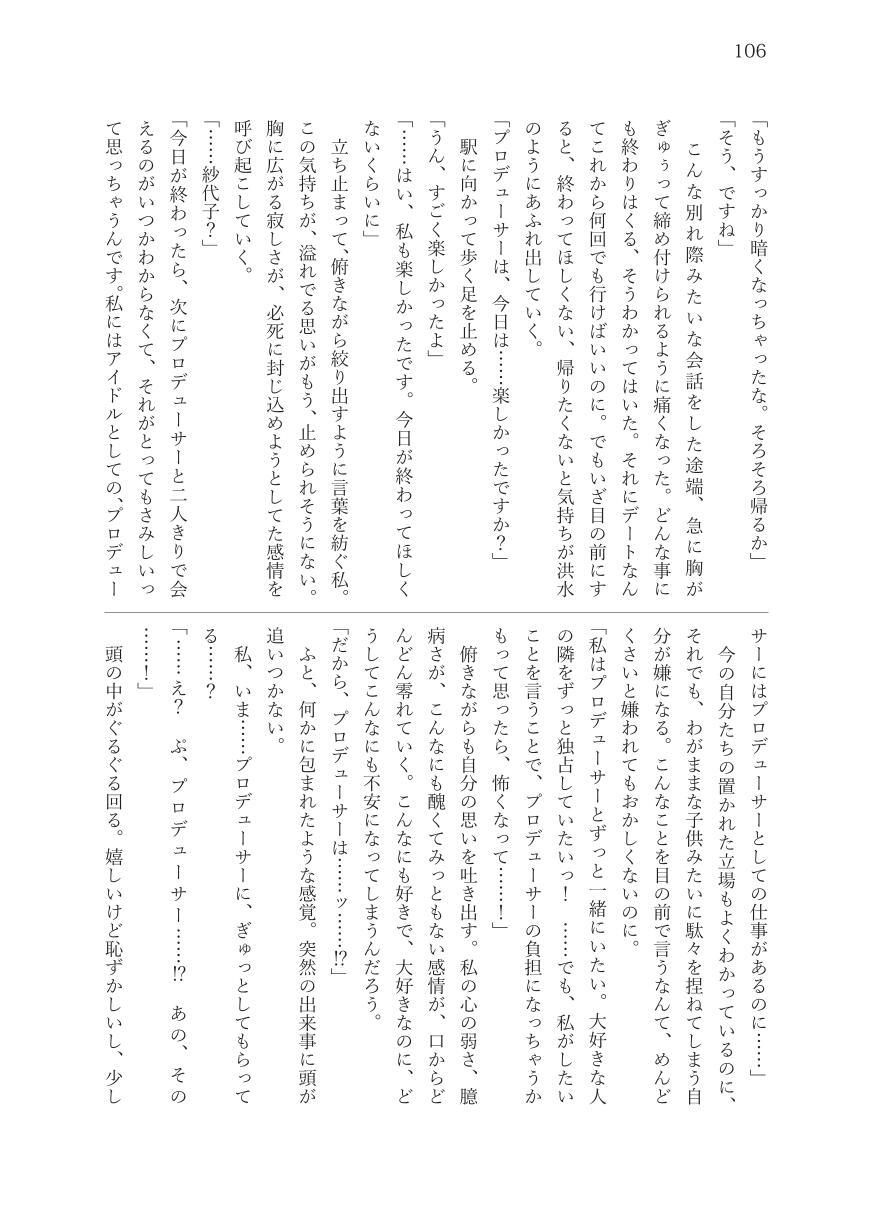 106
「もうすっかり暗くなっちゃったな。そろそろ帰るか」
「そう、ですね」
　こんな別れ際みたいな会話をした途端、急に胸が
ぎゅぅって締め付けられるように痛くなった。どんな事に
も終わりはくる、そうわかってはいた。それにデートなん
てこれから何回でも行けばいいのに。でもいざ目の前にす
ると、終わってほしくない、帰りたくないと気持ちが洪水
のようにあふれ出していく。
「プロデューサーは、今日は……楽しかったですか？」
　駅に向かって歩く足を止める。
「うん、すごく楽しかったよ」
「……はい、私も楽しかったです。今日が終わってほしく
ないくらいに」
　立ち止まって、俯きながら絞り出すように言葉を紡ぐ私。
この気持ちが、溢れでる思いがもう、止められそうにない。
胸に広がる寂しさが、必死に封じ込めようとしてた感情を
呼び起こしていく。
「……紗代子？」
「今日が終わったら、次にプロデューサーと二人きりで会
えるのがいつかわからなくて、それがとってもさみしいっ
て思っちゃうんです。私にはアイドルとしての、プロデュー
サーにはプロデューサーとしての仕事があるのに……」
　今の自分たちの置かれた立場もよくわかっているのに、
それでも、わがままな子供みたいに駄々を捏ねてしまう自
分が嫌になる。こんなことを目の前で言うなんて、めんど
くさいと嫌われてもおかしくないのに。
「私はプロデューサーとずっと一緒にいたい。大好きな人
の隣をずっと独占していたいっ！　……でも、私がしたい
ことを言うことで、プロデューサーの負担になっちゃうか
もって思ったら、怖くなって……！」
　俯きながらも自分の思いを吐き出す。私の心の弱さ、臆
病さが、こんなにも醜くてみっともない感情が、口からど
んどん零れていく。こんなにも好きで、大好きなのに、ど
うしてこんなにも不安になってしまうんだろう。
「だから、プロデューサーは……ッ……⁉」
　ふと、何かに包まれたような感覚。突然の出来事に頭が
追いつかない。
　私、いま……プロデューサーに、ぎゅっとしてもらって
る……？
「……え？　ぷ、プロデューサー……⁉　あの、その
……！」
　頭の中がぐるぐる回る。嬉しいけど恥ずかしいし、少し